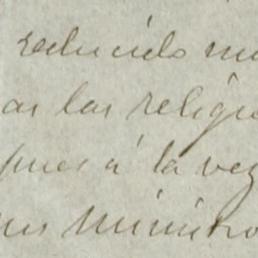 reducido
las religi
pues á la vez
Ministro